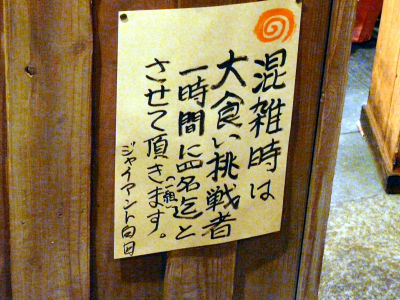 混雑時は
大食い挑戦者
一時間に四名迄と
(一組)
させて頂きます。
ジャイアント白田